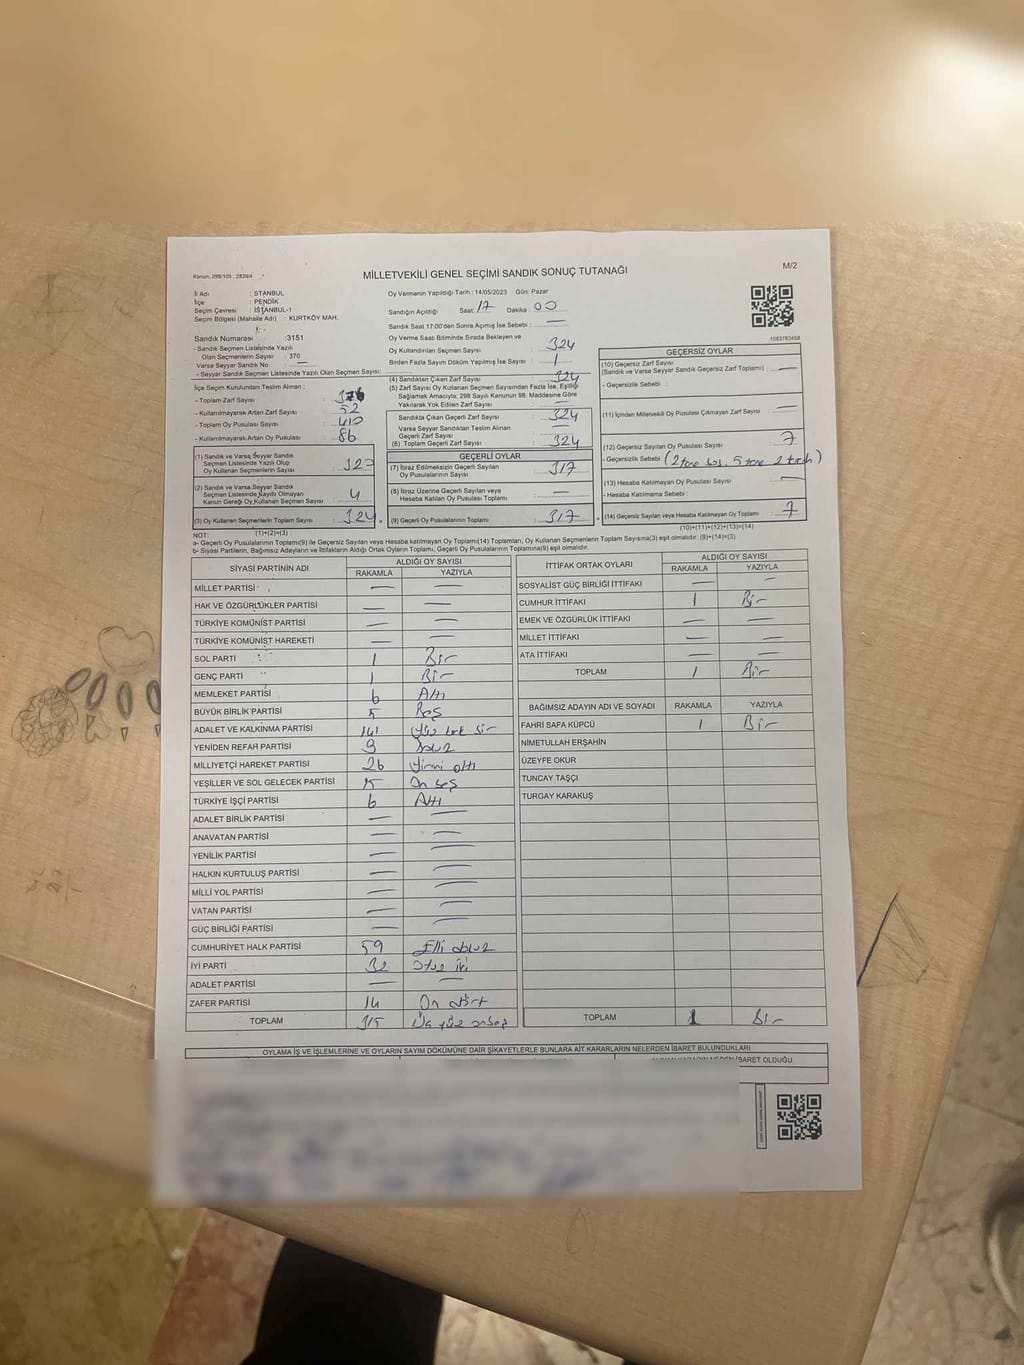 Kanun; 298/105 , 2839/4
MİLLETVEKİLİ GENEL SEÇİMİ SANDIK SONUÇ TUTANAĞI
M/2
İl Adı : STANBUL
İlçe : PENDİK
Seçim Çevresi : İSTANBUL-1
Seçim Bölgesi (Mahalle Adı) : KURTKÖY MAH.
Sandık Numarası :3151
- Sandık Seçmen Listesinde Yazılı
Olan Seçmenlerin Sayısı : 370
Varsa Seyyar Sandık No : —
- Seyyar Sandık Seçmen Listesinde Yazılı Olan Seçmen Sayısı:
İlçe Seçim Kurulundan Teslim Alınan ;
- Toplam Zarf Sayısı :
- Kullanılmayarak Artan Zarf Sayısı : 52
- Toplam Oy Pusulası Sayısı : 410
- Kullanılmayarak Artan Oy Pusulası : 86
(1) Sandık ve Varsa Seyyar Sandık
Seçmen Listesinde Yazılı Olup
Oy Kullanan Seçmenlerin Sayısı :
(2) Sandık ve Varsa Seyyar Sandık
Seçmen Listesinde Kayıtlı Olmayan
Kanun Gereği Oy Kullanan Seçmen Sayısı : 4
(3) Oy Kullanan Seçmenlerin Toplam Sayısı : 324
(1)+(2)=(3)
Oy Vermenin Yapıldığı Tarih : 14/05/2023 Gün: Pazar
Sandığın Açıldığı Saat: 17 Dakika : 00
Sandık Saat 17:00'den Sonra Açılmış İse Sebebi : —
Oy Verme Saati Bitiminde Sırada Bekleyen ve
Oy Kullandırılan Seçmen Sayısı : 324
Birden Fazla Sayım Döküm Yapılmış İse Sayısı : 1
(4) Sandıktan Çıkan Zarf Sayısı : 324
(5) Zarf Sayısı Oy Kullanan Seçmen Sayısından Fazla İse, Eşitliği
Sağlamak Amacıyla, 298 Sayılı Kanunun 98. Maddesine Göre
Yakılarak Yok Edilen Zarf Sayısı : —
Sandıkta Çıkan Geçerli Zarf Sayısı : 324
Varsa Seyyar Sandıktan Teslim Alınan
Geçerli Zarf Sayısı : —
(6) Toplam Geçerli Zarf Sayısı : 324
GEÇERLİ OYLAR
(7) İtiraz Edilmeksizin Geçerli Sayılan
Oy Pusulalarının Sayısı : 317
(8) İtiraz Üzerine Geçerli Sayılan veya
Hesaba Katılan Oy Pusulası Toplamı : —
(9) Geçerli Oy Pusulalarının Toplamı : 317
1083783458
GEÇERSİZ OYLAR
(10) Geçersiz Zarf Sayısı
(Sandık ve Varsa Seyyar Sandık Geçersiz Zarf Toplamı) : —
- Geçersizlik Sebebi :
(11) İçinden Milletvekili Oy Pusulası Çıkmayan Zarf Sayısı : —
(12) Geçersiz Sayılan Oy Pusulası Sayısı : 7
- Geçersizlik Sebebi : (2 tane boş, 5 tane 2 tercih)
(13) Hesaba Katılmayan Oy Pusulası Sayısı : —
- Hesaba Katılmama Sebebi :
(14) Geçersiz Sayılan veya Hesaba Katılmayan Oy Toplamı : 7
(10)+(11)+(12)+(13)=(14)
NOT:
a- Geçerli Oy Pusulalarının Toplamı(9) ile Geçersiz Sayılan veya Hesaba katılmayan Oy Toplamı(14) Toplamları, Oy Kullanan Seçmenlerin Toplam Sayısına(3) eşit olmalıdır. (9)+(14)=(3)
b- Siyasi Partilerin, Bağımsız Adayların ve İttifakların Aldığı Ortak Oyların Toplamı, Geçerli Oy Pusulalarının Toplamına(9) eşit olmalıdır.
SİYASİ PARTİNİN ADI ALDIĞI OY SAYISI
RAKAMLA YAZIYLA
MİLLET PARTİSİ — —
HAK VE ÖZGÜRLÜKLER PARTİSİ — —
TÜRKİYE KOMÜNİST PARTİSİ — —
TÜRKİYE KOMÜNİST HAREKETİ — —
SOL PARTİ 1 Bir
GENÇ PARTİ 1 Bir
MEMLEKET PARTİSİ 6 Altı
BÜYÜK BİRLİK PARTİSİ 5 Beş
ADALET VE KALKINMA PARTİSİ 141 Yüz kırk bir
YENİDEN REFAH PARTİSİ 9 Dokuz
MİLLİYETÇİ HAREKET PARTİSİ 26 Yirmi altı
YEŞİLLER VE SOL GELECEK PARTİSİ 15 On beş
TÜRKİYE İŞÇİ PARTİSİ 6 Altı
ADALET BİRLİK PARTİSİ — —
ANAVATAN PARTİSİ — —
YENİLİK PARTİSİ — —
HALKIN KURTULUŞ PARTİSİ — —
MİLLİ YOL PARTİSİ — —
VATAN PARTİSİ — —
GÜÇ BİRLİĞİ PARTİSİ — —
CUMHURİYET HALK PARTİSİ 59 Elli dokuz
İYİ PARTİ 32 Otuz iki
ADALET PARTİSİ — —
ZAFER PARTİSİ 14 On dört
TOPLAM 315 Üç yüz onbeş
İTTİFAK ORTAK OYLARI ALDIĞI OY SAYISI
RAKAMLA YAZIYLA
SOSYALİST GÜÇ BİRLİĞİ İTTİFAKI — —
CUMHUR İTTİFAKI 1 Bir
EMEK VE ÖZGÜRLÜK İTTİFAKI — —
MİLLET İTTİFAKI — —
ATA İTTİFAKI — —
TOPLAM 1 Bir
BAĞIMSIZ ADAYIN ADI VE SOYADI RAKAMLA YAZIYLA
FAHRİ SAFA KÜPCÜ 1 Bir
NİMETULLAH ERŞAHİN
ÜZEYFE OKUR
TUNCAY TAŞÇI
TURGAY KARAKUŞ
TOPLAM 1 Bir
OYLAMA İŞ VE İŞLEMLERİNE VE OYLARIN SAYIM DÖKÜMÜNE DAİR ŞİKAYETLERLE BUNLARA AİT KARARLARIN NELERDEN İBARET BULUNDUKLARI
İBARET OLDUĞU